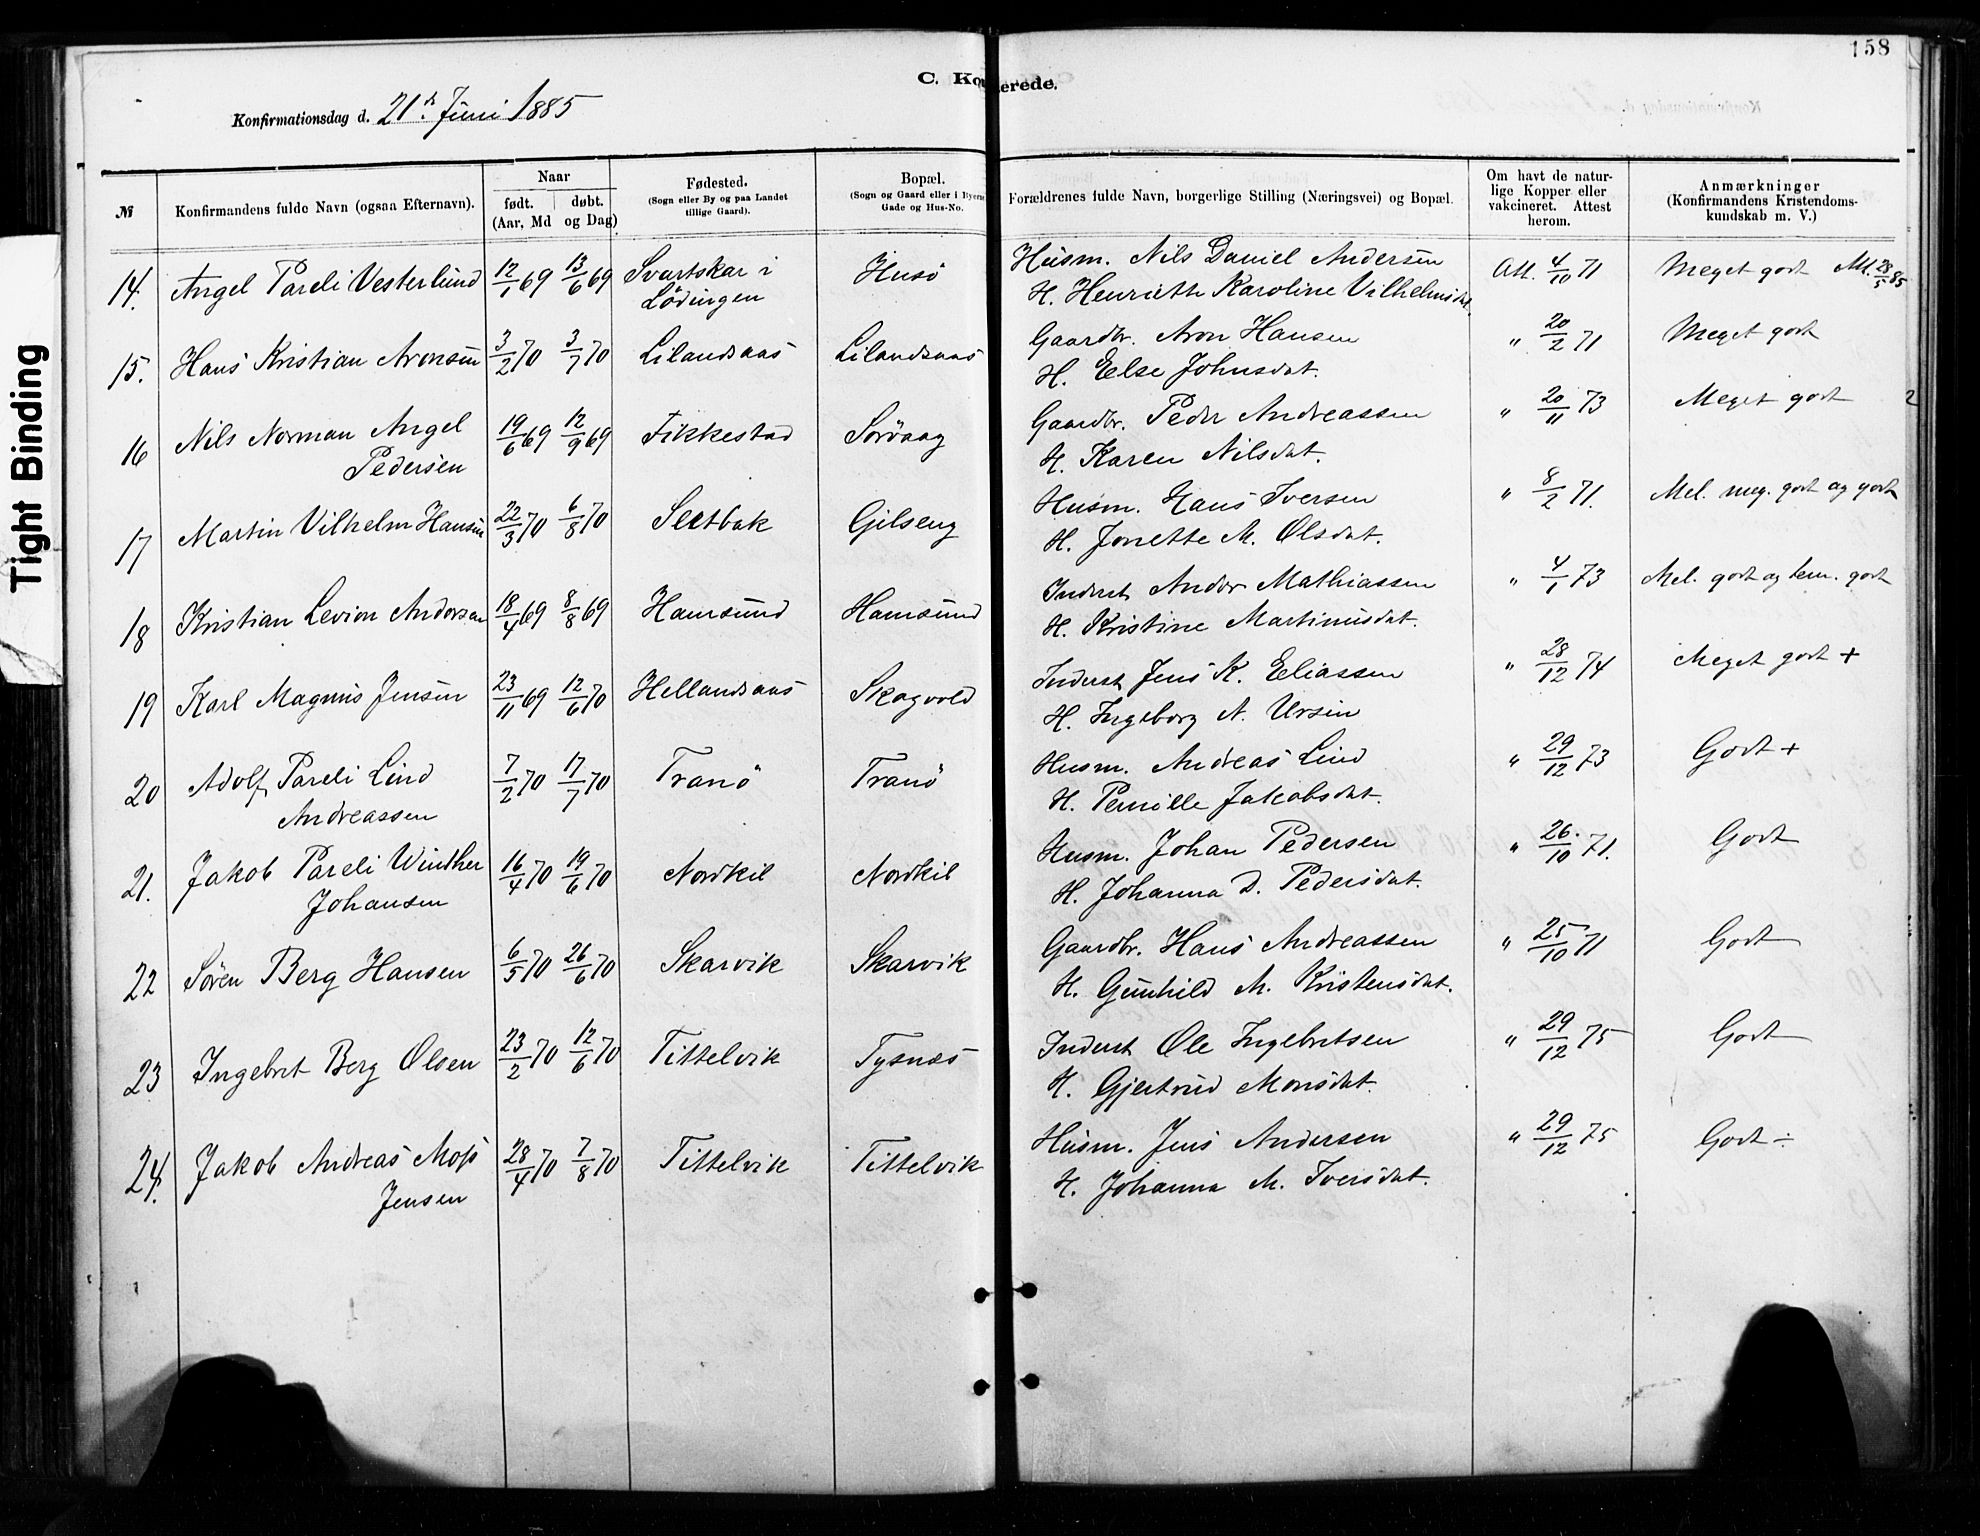 158
C. Ko
erede.
Konfirmationsdag d. 21de Juni 1885
№
Konfirmandens fulde Navn (ogsaa Efternavn).
Naar
født. døbt.
(Aar, Md og Dag)
Fødested.
(Sogn eller By og paa Landet
tillige Gaard).
Bopæl.
(Sogn og Gaard eller i Byerne
Gade og Hus-No.
Forældrenes fulde Navn, borgerlige Stilling (Næringsvei) og Bopæl.
Om havt de natur-
lige Kopper eller
vakcineret. Attest
herom.
Anmærkninger
(Konfirmandens Kristendoms-
kundskab m. V.)
14. Angel Pareli Vesterlund 12/1 69 13/6 69 Svartskar i Husö Husm. Nils Daniel Andersen Att. 4/10 71 Meget godt Att. 28/5 85
Lödingen H. Henriette Karoline Vilhelmsdat.
15. Hans Kristian Aronsen 3/2 70 3/7 70 Lilandsaas Lilandsaas Gaardbr. Aron Hansen " 20/2 71 Meget godt
H. Else Johnsdat.
16 Nils Norman Angel 19/6 69 12/9 69 Fikkestad Sörvaag Gaardbr. Peder Andreassen " 20/11 73 Meget godt 2
Pedersen H. Karen Nilsdat.
17 Martin Vilhelm Hansen 22/3 70 6/8 70 Sletbak Gilseng Husm. Hans Iversen " 8/2 71. Mel. meg. godt og godt
H. Jonette M. Olsdat.
18 Kristian Levion Andersen 18/4 69 8/8 69 Hamsund Hamsund Inderst Anders Mathiassen " 4/1 73 Mel. godt og tem. godt
H. Kristine Martinusdat.
19 Karl Magnus Jensen 23/11 69 12/6 70 Hellandsaas Skogvold Inderst Jens K. Eliassen " 28/12 74 Meget godt +
H. Ingeborg A. Ursin
20 Adolf Pareli Lind 7/2 70 17/7 70 Tranö Tranö Husm. Andreas Lind " 29/12 73 Godt +
Andreassen H. Pernille Jakobsdat.
21. Jakob Pareli Winther 16/4 70 19/6 70 Nordkil Nordkil Husm. Johan Pedersen " 26/10 71. Godt
Johansen H. Johanna D. Pedersdat.
22 Sören Berg Hansen 6/5 70 26/6 70 Skarvik Skarvik Gaardbr. Hans Andreassen " 25/10 71 Godt
H. Gunhild M. Kristensdat.
23 Ingebret Berg Olsen 23/2 70 12/6 70 Tittelvik Tysnæs Inderst Ole Ingebretsen " 29/12 75 Godt
H. Gjertrud Monsdat.
24. Jakob Andreas Moss 28/4 70 7/8 70 Tittelvik Tittelvik Husm. Jens Andersen " 29/12 75 Godt ÷
Jensen H. Johanna M. Iversdat.
Tight Binding